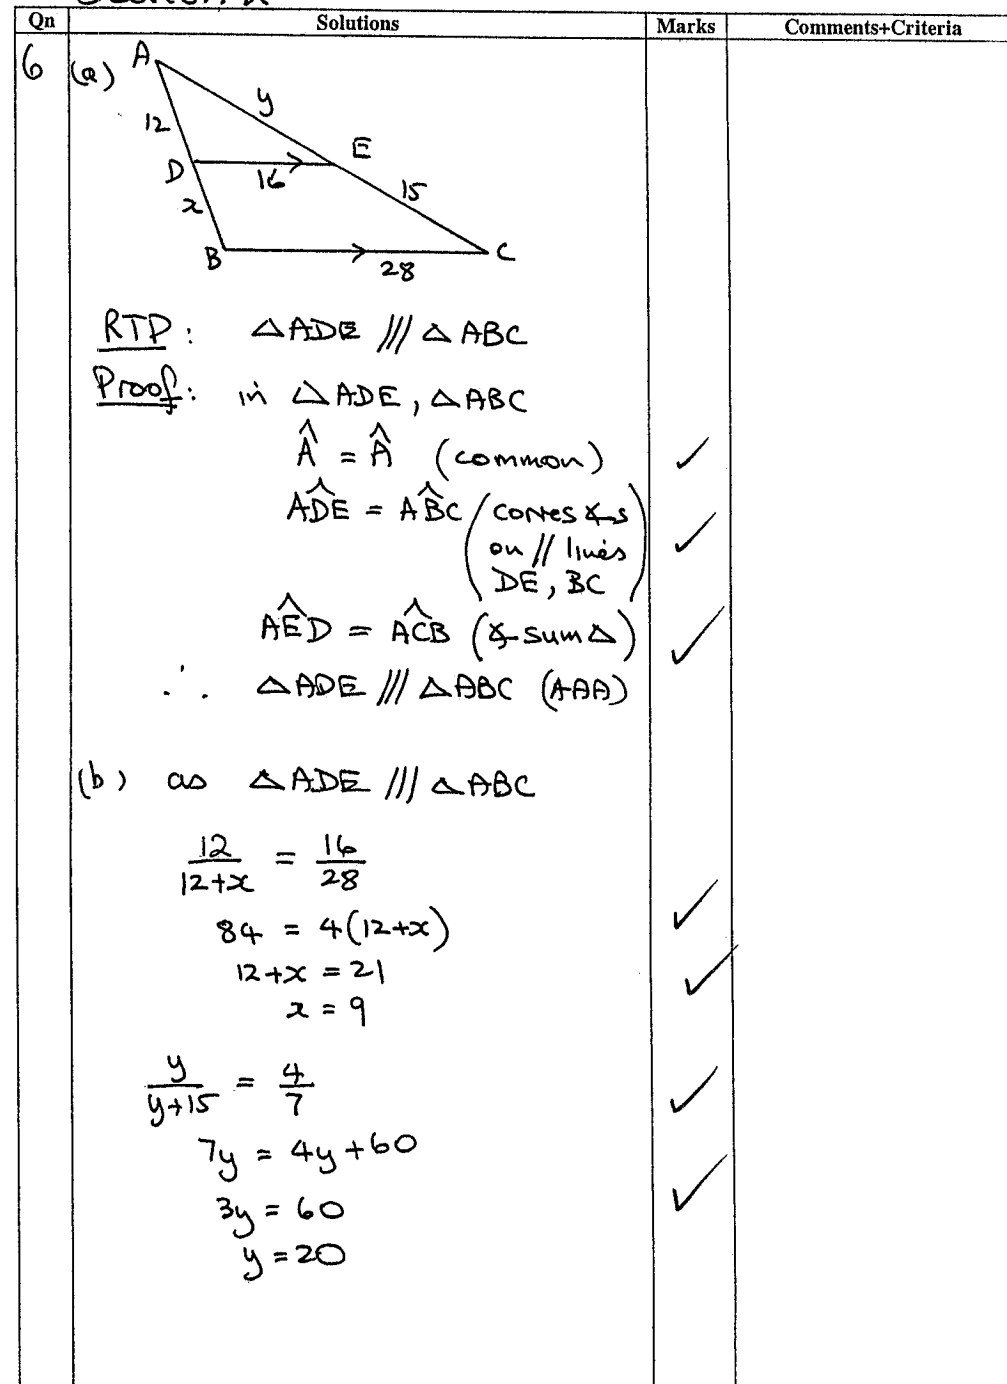 Qn Solutions Marks Comments+Criteria
6 (a) A
y
12
E
D
16
15
x
B
C
28
RTP: △ADE /// △ABC
Proof: in △ADE, △ABC
Â = Â (common) ✓
AD̂E = AB̂C (corres ∡s
on // lines ✓
DE, BC)
AÊD = AĈB (∡ sum △) ✓
∴ △ADE /// △ABC (AAA)
(b) as △ADE /// △ABC
12/(12+x) = 16/28
84 = 4(12+x) ✓
12+x = 21 ✓
x = 9
y/(y+15) = 4/7 ✓
7y = 4y+60
3y = 60 ✓
y = 20